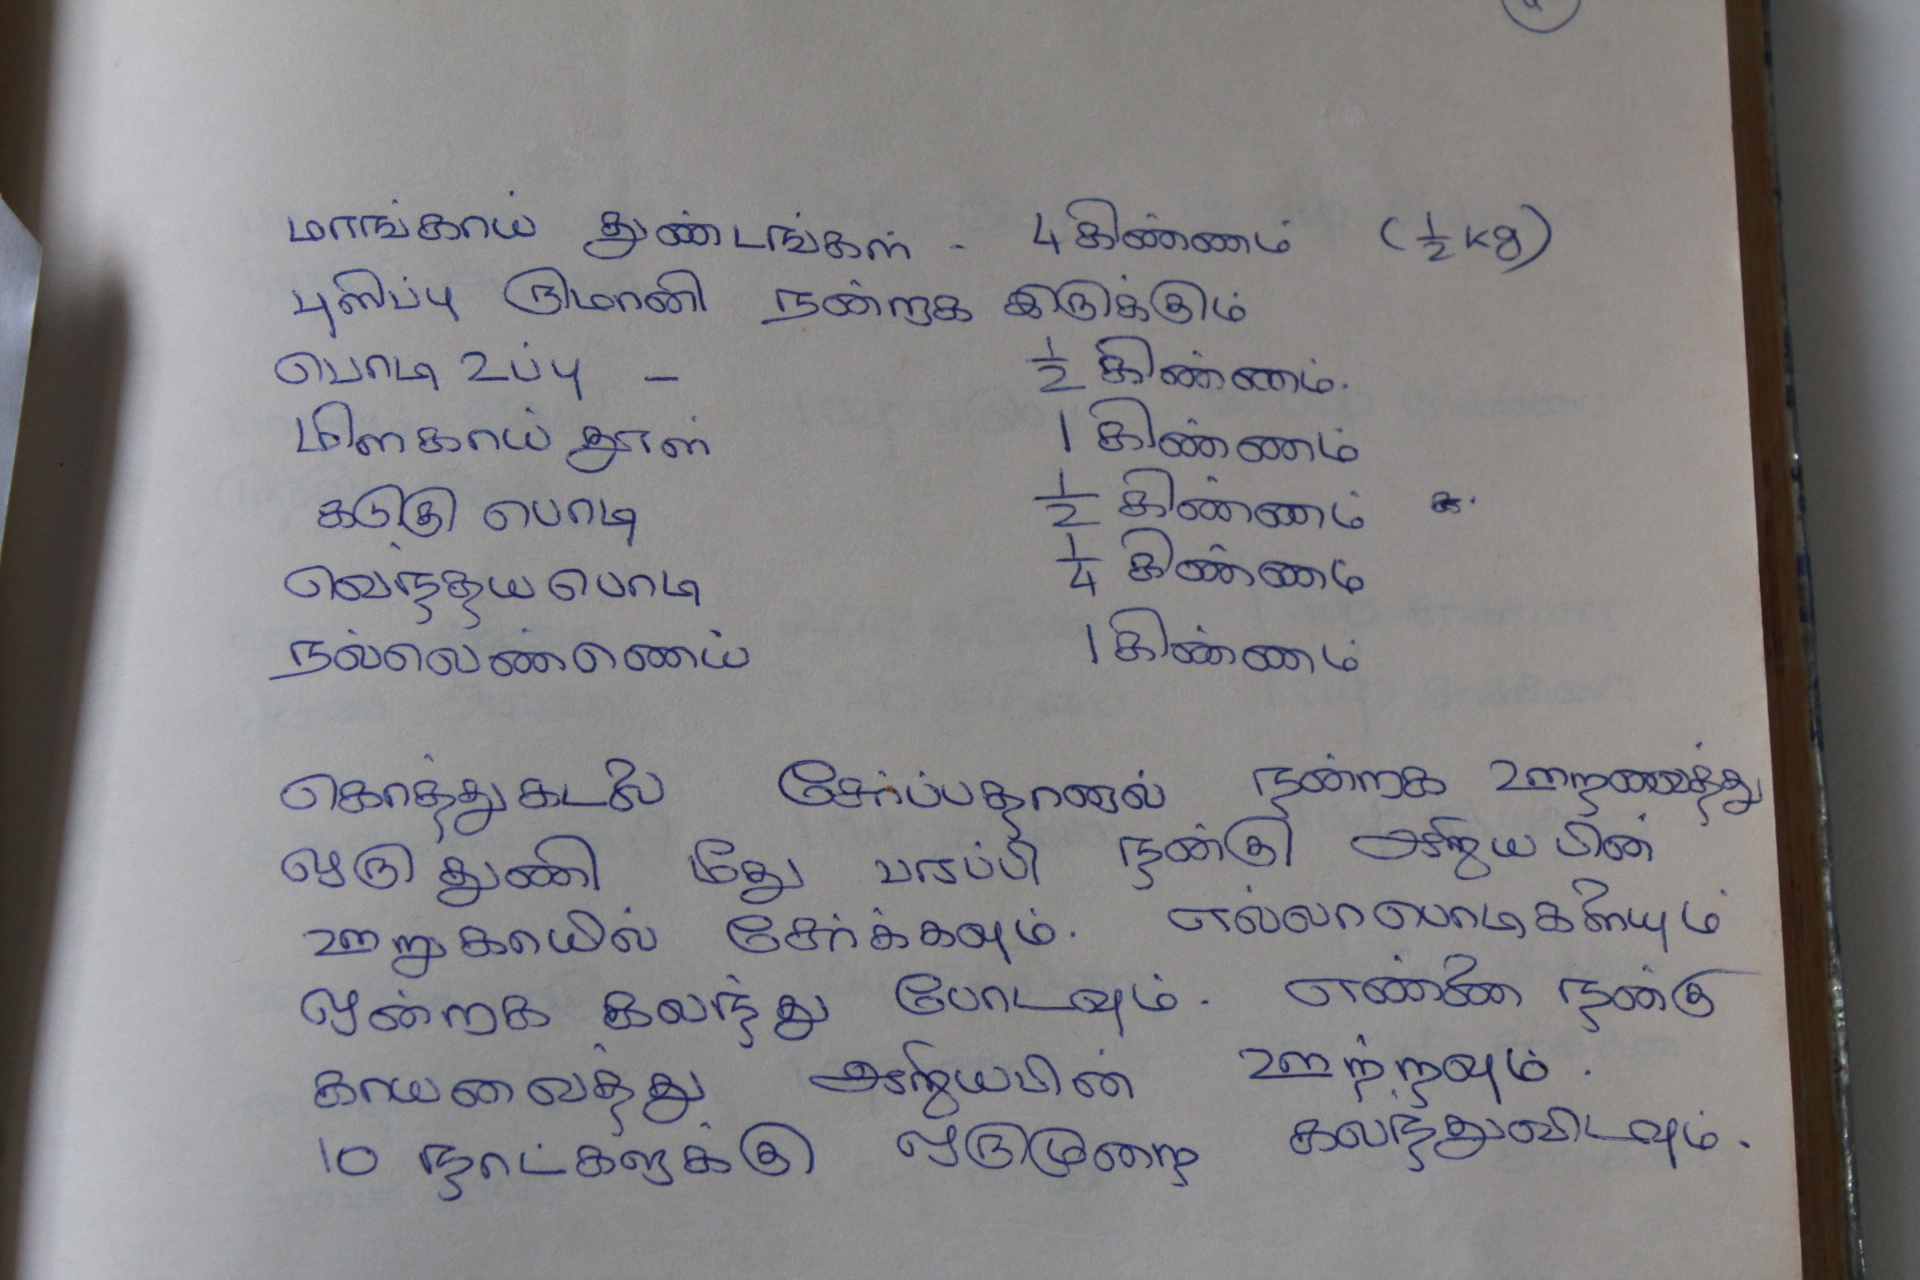 மாங்காய் துண்டங்கள் - 4 கிண்ணம் (½ kg)
புளிப்பு ருமானி நன்றாக இருக்கும்
பொடி உப்பு - ½ கிண்ணம்.
மிளகாய் தூள் 1 கிண்ணம்
கடுகு பொடி ½ கிண்ணம்
வெந்தய பொடி ¼ கிண்ணம்
நல்லெண்ணெய் 1 கிண்ணம்
கொத்துகடலை சேர்ப்பதானால் நன்றாக ஊறவைத்து
ஒரு துணி மீது பரப்பி நன்கு ஆறிய பின்
ஊறுகாயில் சேர்க்கவும். எல்லா பொடிகளையும்
ஒன்றாக கலந்து போடவும். எண்ணை நன்கு
காயவைத்து ஆறியபின் ஊற்றவும்.
10 நாட்களுக்கு ஒருமுறை கலந்துவிடவும்.